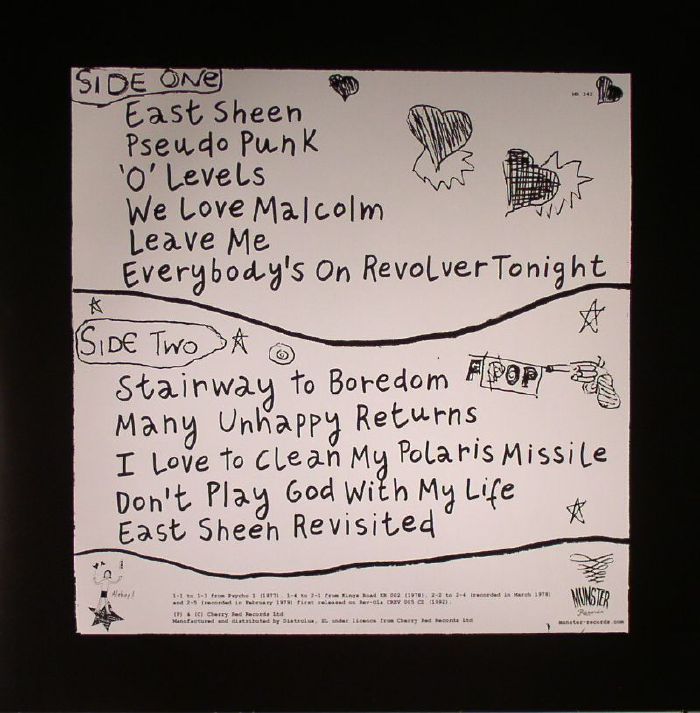 SIDE ONE
MR 342
East Sheen
Pseudo Punk
'O' Levels
We Love Malcolm
Leave Me
Everybody's On Revolver Tonight
SIDE TWO
POP
Stairway to Boredom
Many Unhappy Returns
I Love to Clean My Polaris Missile
Don't Play God With My Life
East Sheen Revisited
1-1 to 1-3 from Psycho 1 (1977). 1-4 to 2-1 from Kings Road KR 002 (1978). 2-2 to 2-4 (recorded in March 1978)
and 2-5 (recorded in February 1979) first released on Rev-Ola CREV 005 CD (1992).
(P) & (C) Cherry Red Records Ltd
Manufactured and distributed by Distrolux, SL under licence from Cherry Red Records Ltd
MUNSTER
Records
munster-records.com